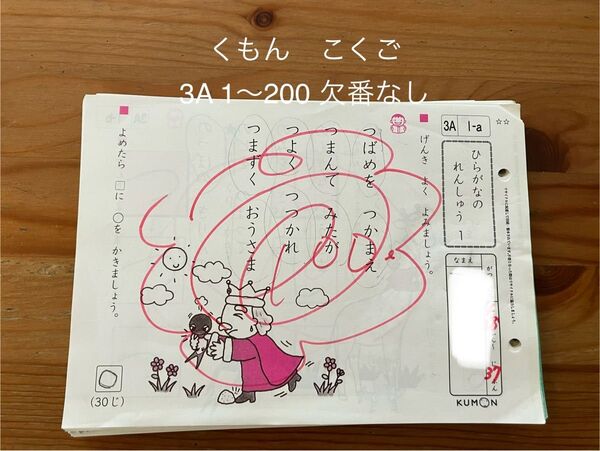 くもん　こくご
3A 1〜200 欠番なし
3A 1-a
☆☆
ひらがなの
れんしゅう 1
なまえ
■ げんき よく よみましょう。
つばめを つかまえ
つまんで みたが
つよく つつかれ
つまずく おうさま
■ よめたら □に ○を かきましょう。
(30じ)
100
37
KUMON